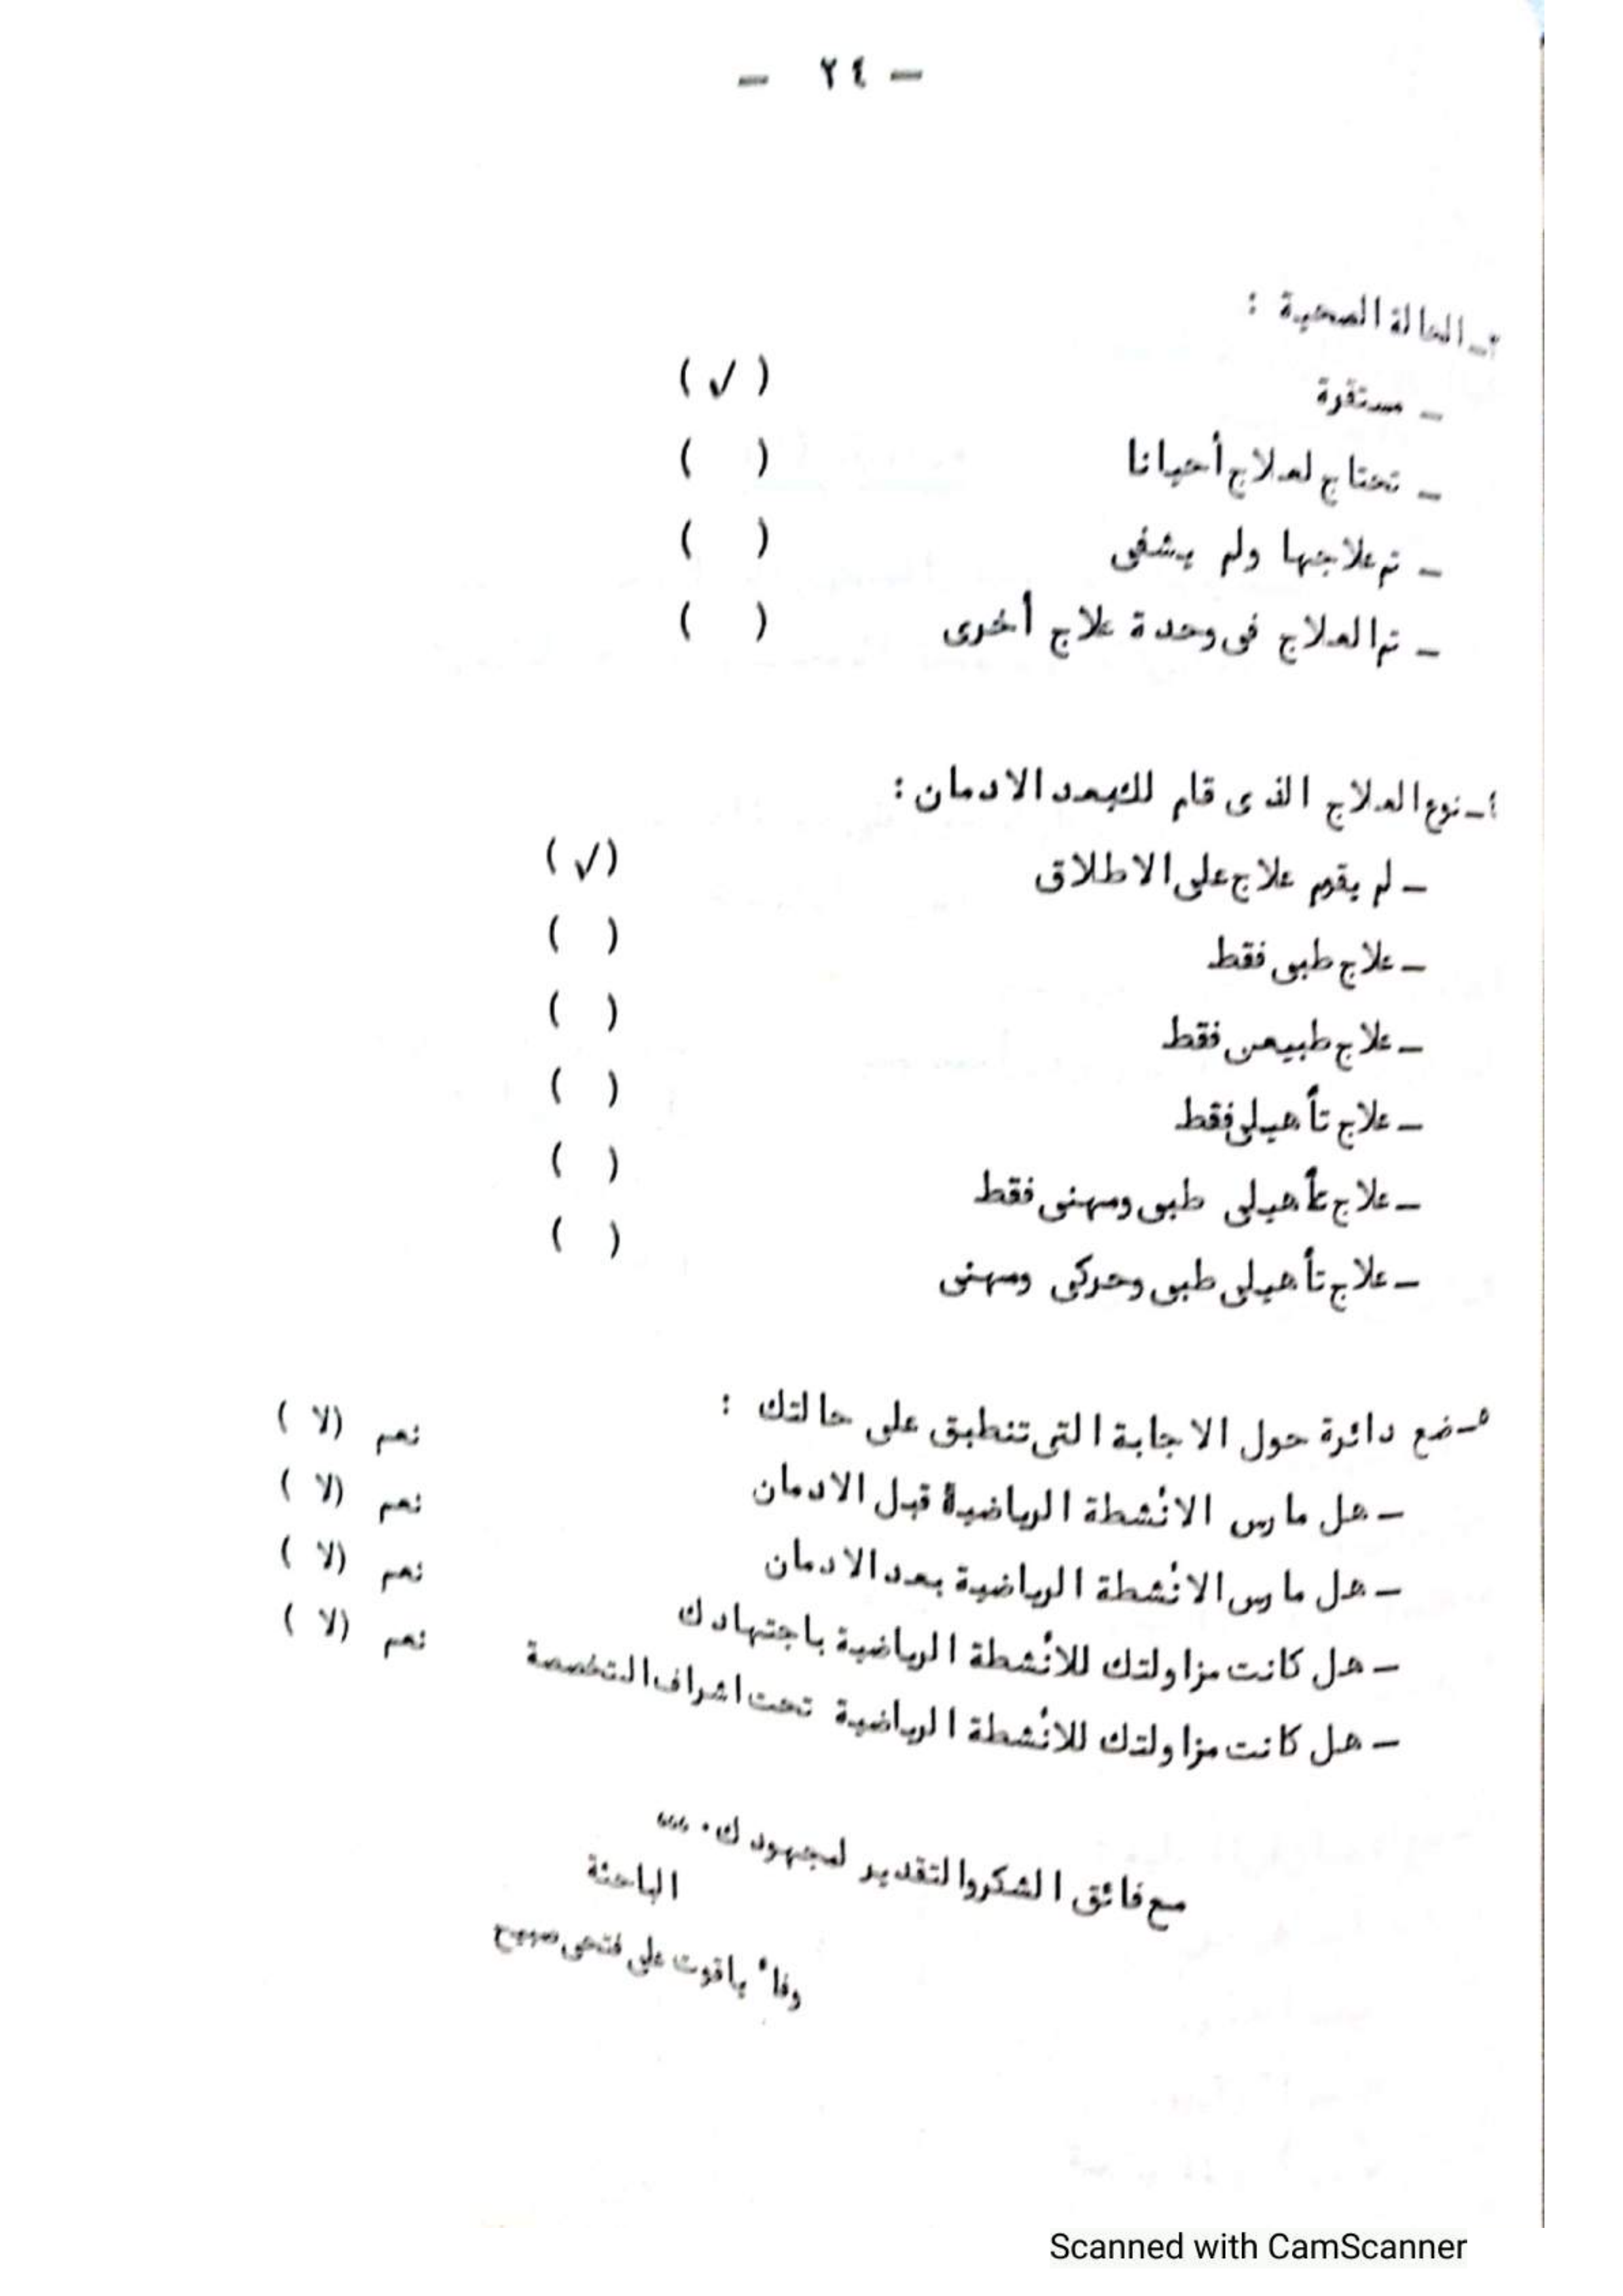 – ٢٤ –
٣ـ الحالة الصحية :
ـ مستقرة ( √ )
ـ تحتاج لعلاج أحيانا ( )
ـ تم علاجها ولم يشفى ( )
ـ تم العلاج فى وحدة علاج أخرى ( )
٤ـ نوع العلاج الذى قام لك بعد الادمان :
ـ لم يقوم علاج على الاطلاق ( √ )
ـ علاج طبى فقط ( )
ـ علاج طبيعى فقط ( )
ـ علاج تأهيلى فقط ( )
ـ علاج تأهيلى طبى ومهنى فقط ( )
ـ علاج تأهيلى طبى وحركى ومهنى ( )
٥ـ ضع دائرة حول الاجابة التى تنطبق على حالتك :
ـ هل مارس الانشطة الرياضية قبل الادمان نعم ( لا )
ـ هل مارس الانشطة الرياضية بعد الادمان نعم ( لا )
ـ هل كانت مزاولتك للانشطة الرياضية باجتهادك نعم ( لا )
ـ هل كانت مزاولتك للانشطة الرياضية تحت اشراف التخصصة نعم ( لا )
مع فائق الشكر والتقدير لمجهودك . ،،،
الباحثة
وفاء ياقوت على فتحى صبيح
Scanned with CamScanner